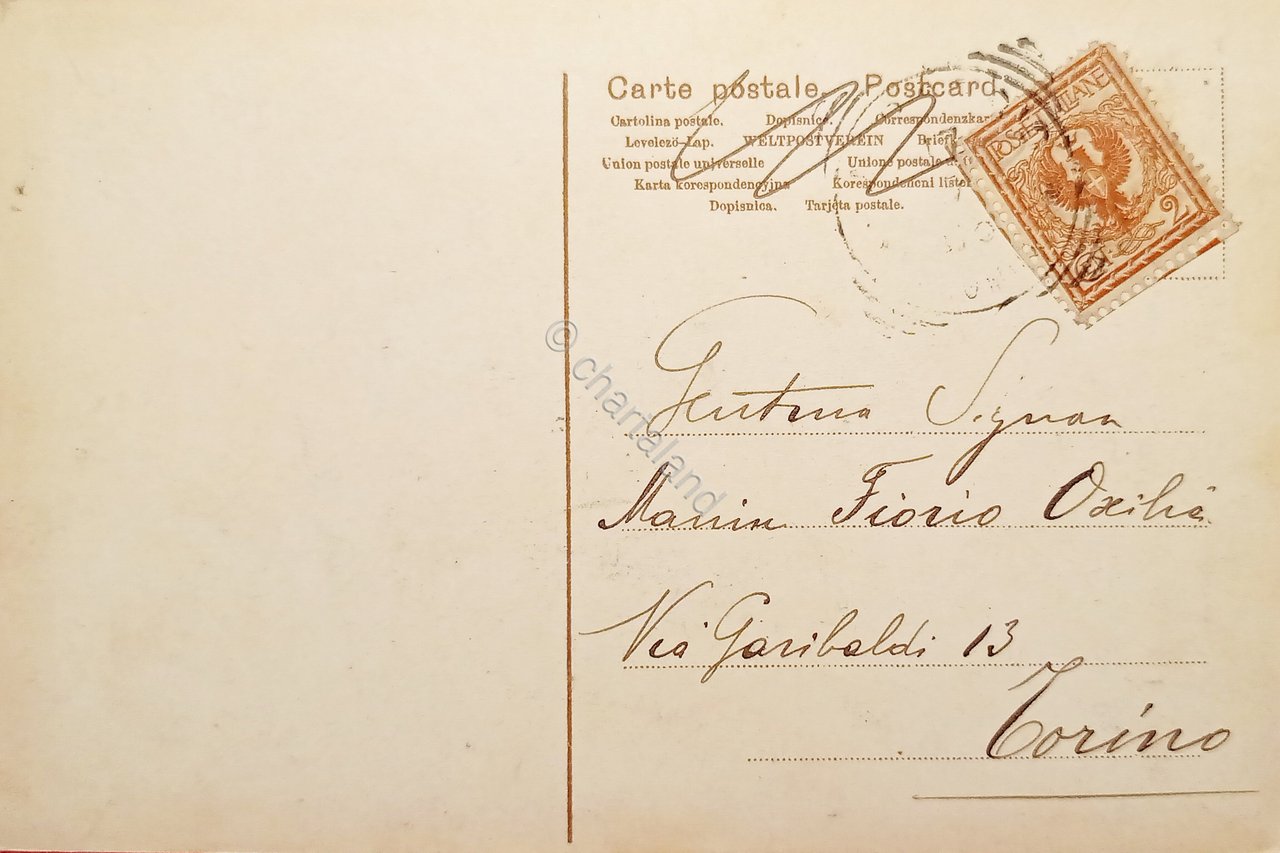 Carte postale. Postcard
Cartolina postale. Dopisnice. Correspondenzkar
Levelező-Lap. WELTPOSTVEREIN Briefk
Union postale universelle Unione postale
Karta korespondencyjna Korespondencni listek
Dopisnica. Tarjeta postale.
POSTE ITALIANE
2
© chartaland
Signora
Fiorio Oxilia
Via Garibaldi 13
Torino